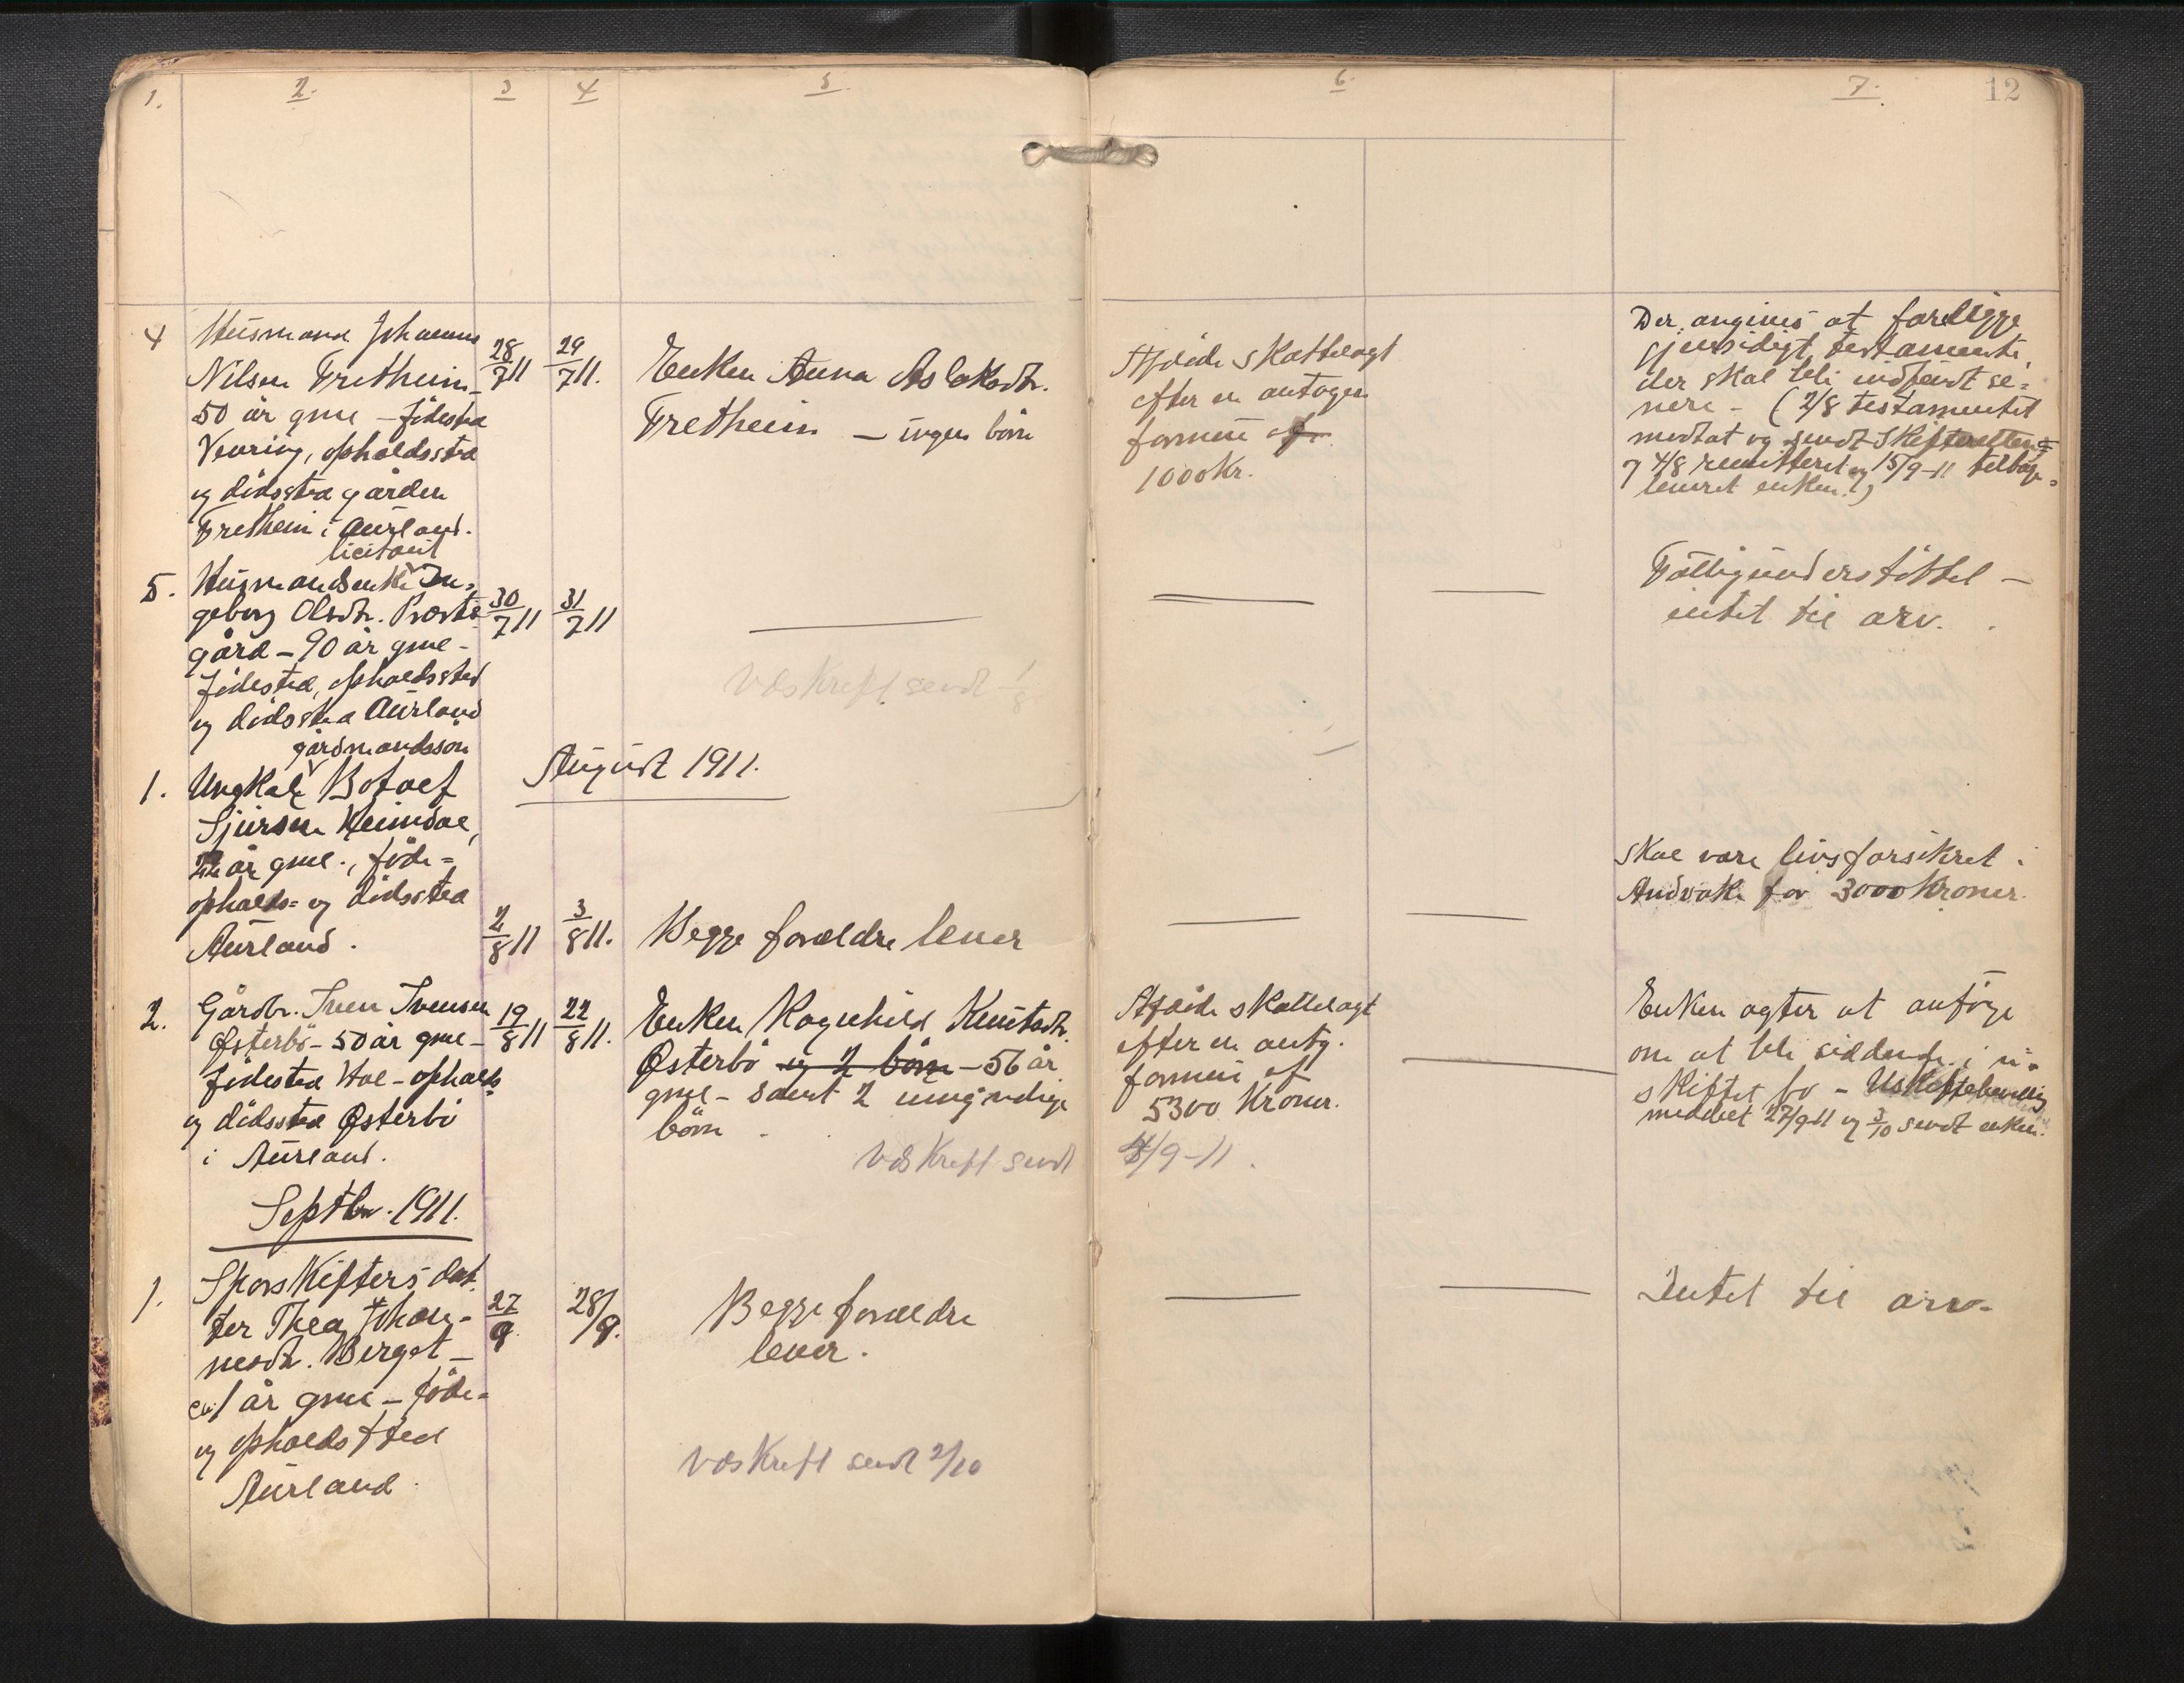 1.
2.
3
4
5.
6.
7.
12
4
Husmand Johannes
Nilsen Fretheim -
50 år gml - fødested
Veuring, opholdssted
og dødssted gården
Fretheim i Aurland.
28/7 11
29/7 11.
Enken Anna Aslaksdtr.
Fretheim - ingen børn
Afdøde skattelagt
efter en antagen
formue af
1000 Kr.
Der angives at foreligge
gjensidigt testamente,
der skal bli indsendt se-
nere - (2/8 testamentet
modtat og sendt Skifteretten
4/8 remitteret og 15/9-11 tilbage-
leveret enken.)
5.
licitant
Husmandsenke In-
geborg Olsdtr. Præste
gård - 90 år gml -
fødested, opholdssted
og dødssted Aurland
30/7 11
31/7 11
Fattigunderstøttet -
intet til arv.
Vdskreft sendt 1/8
August 1911.
1.
gårdmandssøn
Ungkarl Botolf
Sjursen Heimdal,
22 år gml., føde-
opholds- og dødssted
Aurland.
2/8 11
3/8 11.
Begge forældre lever
Skal være livsforsikret i
Andvake for 3000 Kroner.
2.
Gårdbr. Iven Ivensen
Østerbø - 50 år gml -
fødested Hol - opholds
og dødssted Østerbø
i Aurland.
19/8 11
22/8 11.
Enken Ragnhild Knutsdtr.
Østerbø og 2 børn - 56 år
gml - samt 2 umyndige
børn
Afdøde skattelagt
efter en antg.
formue af
5300 Kroner.
Enken agter at ansøge
om at bli siddende i u-
skiftet bo - Uskiftebevilling
meddelt 27/9-11 og 3/10 sendt enken.
Vdskreft sendt 4/9-11.
Septbr. 1911.
1.
Sporskifters dat
ter Thea Johan-
nesdt. Berget -
1 år gml - føde-
og opholdssted
Aurland
27/9.
28/9.
Begge forældre
lever.
Intet til arv.
Vdskreft sendt 2/10